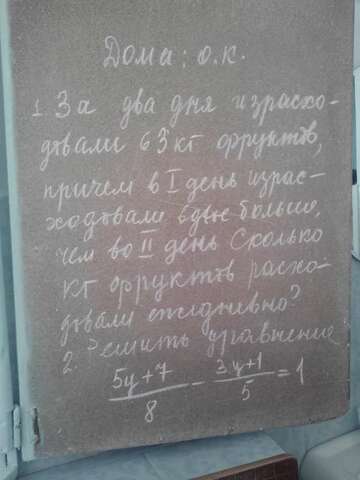 Дома: о.к.
1. За два дня израсхо-
довали 63 кг фруктов,
причем в I день израс-
ходовали вдвое больше,
чем во II день Сколько
кг фруктов расхо-
довали ежедневно?
2. Решить уравнение
(5y+7)/8 - (3y+1)/5 = 1